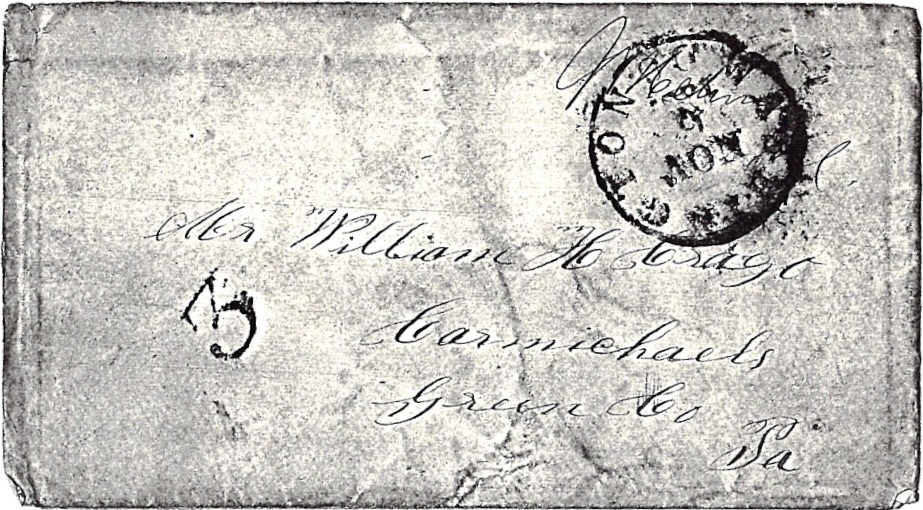 GTON
NOV
Mr William H Crago
3
Carmichaels
Green Co
Pa